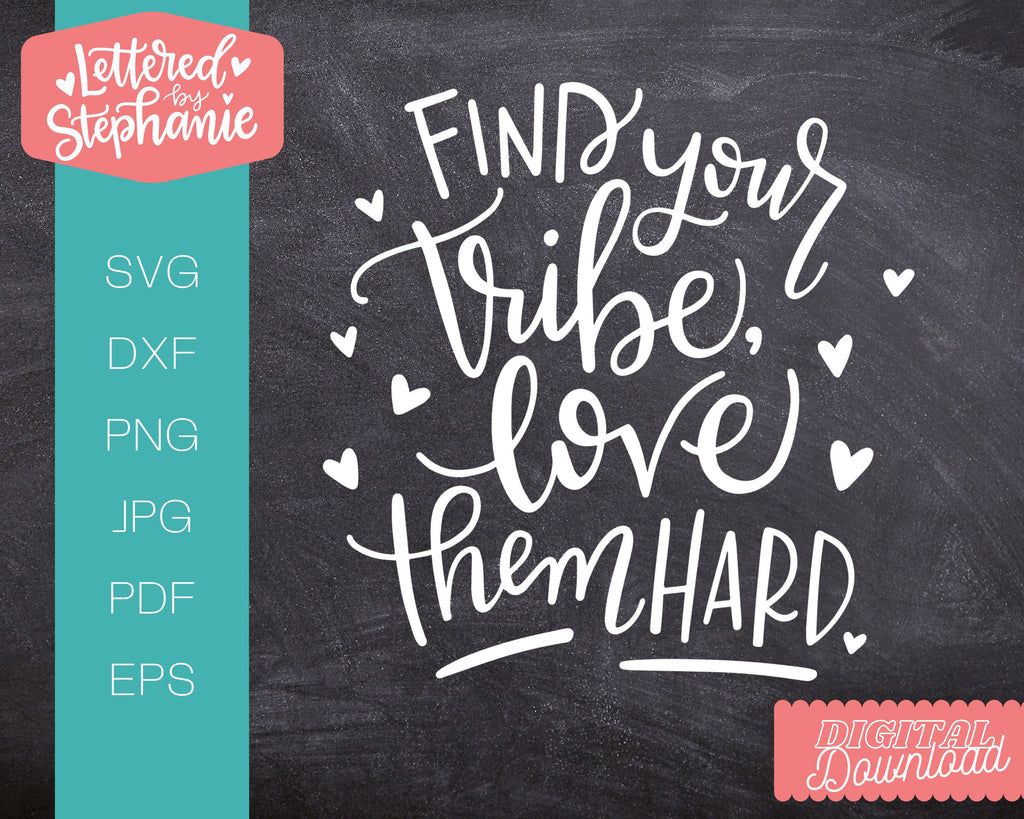 Lettered
by
Stephanie
SVG
DXF
PNG
JPG
PDF
EPS
FIND your
tribe,
love
them HARD.
DIGITAL
Download